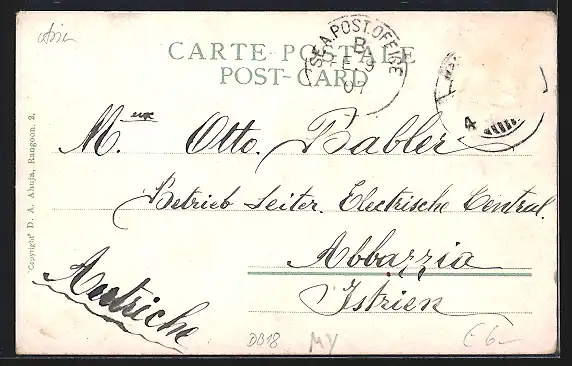 Asien
CARTE POSTALE
POST-CARD
SEA.POST.OFFICE
B
FE 9
07
4
M. eux Otto. Babler
Betrieb Leiter. Electrische Central.
Abbazzia
Istrien
Autriche
"Copyright" D. A. Ahuja, Rangoon. 2.
DB18
MY
€ 6-